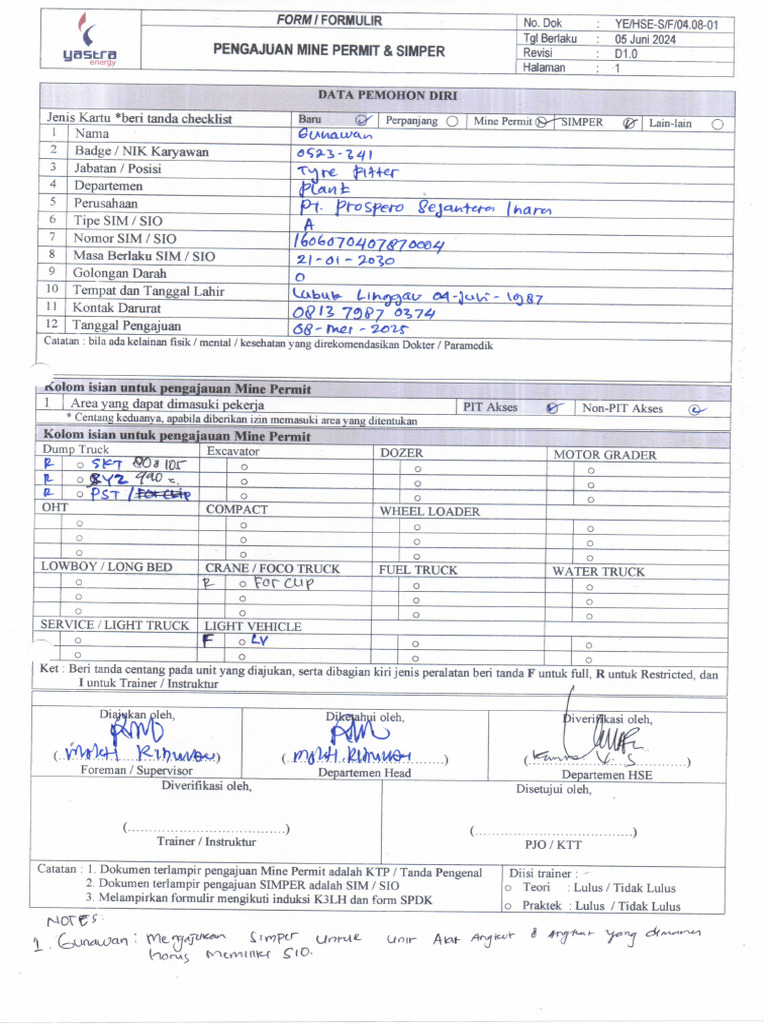 yastra
energy
FORM / FORMULIR
PENGAJUAN MINE PERMIT & SIMPER
No. Dok : YE/HSE-S/F/04.08-01
Tgl Berlaku : 05 Juni 2024
Revisi : D1.0
Halaman : 1
DATA PEMOHON DIRI
Jenis Kartu *beri tanda checklist Baru Perpanjang Mine Permit SIMPER Lain-lain
1 Nama Gunawan
2 Badge / NIK Karyawan 0523-341
3 Jabatan / Posisi Tyre Fitter
4 Departemen Plant
5 Perusahaan PT. Prospero Sejantera Inara
6 Tipe SIM / SIO A
7 Nomor SIM / SIO 1606070407870004
8 Masa Berlaku SIM / SIO 21-01-2030
9 Golongan Darah O
10 Tempat dan Tanggal Lahir Lubuk Linggau 04-Juli-1987
11 Kontak Darurat 0813 7987 0374
12 Tanggal Pengajuan 08-Mei-2025
Catatan : bila ada kelainan fisik / mental / kesehatan yang direkomendasikan Dokter / Paramedik
Kolom isian untuk pengajauan Mine Permit
1 Area yang dapat dimasuki pekerja PIT Akses Non-PIT Akses
* Centang keduanya, apabila diberikan izin memasuki area yang ditentukan
Kolom isian untuk pengajauan Mine Permit
Dump Truck Excavator DOZER MOTOR GRADER
R SKT 808 105
R SYZ 990 c.
R PST / For Clip
OHT COMPACT WHEEL LOADER
LOWBOY / LONG BED CRANE / FOCO TRUCK FUEL TRUCK WATER TRUCK
R For Clip
SERVICE / LIGHT TRUCK LIGHT VEHICLE
F LV
Ket : Beri tanda centang pada unit yang diajukan, serta dibagian kiri jenis peralatan beri tanda F untuk full, R untuk Restricted, dan
I untuk Trainer / Instruktur
Diajukan oleh, Diketahui oleh, Diverifikasi oleh,
(Mokti Ridwan) (Mokti. Ridwan)
Foreman / Supervisor Departemen Head Departemen HSE
Diverifikasi oleh, Disetujui oleh,
(....................................) (....................................)
Trainer / Instruktur PJO / KTT
Catatan : 1. Dokumen terlampir pengajuan Mine Permit adalah KTP / Tanda Pengenal
2. Dokumen terlampir pengajuan SIMPER adalah SIM / SIO
3. Melampirkan formulir mengikuti induksi K3LH dan form SPDK
Diisi trainer : -
Teori : Lulus / Tidak Lulus
Praktek : Lulus / Tidak Lulus
NOTES:
1. Gunawan : Mengajukan Simper untuk unit Alat Angkat & Angkut yang dimana
harus memiliki SIO.